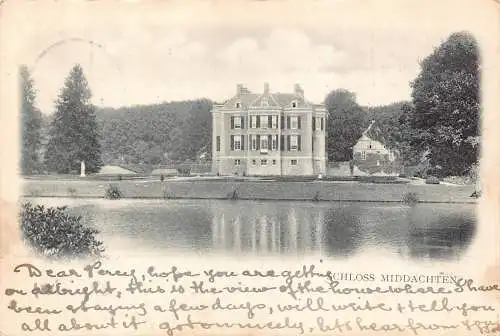 SCHLOSS MIDDACHTEN
Dear Percy, hope you are getting
on allright, this is the view of the house where I have
been staying a few days, will write & tell you
all about it got on nicely, let hear from you